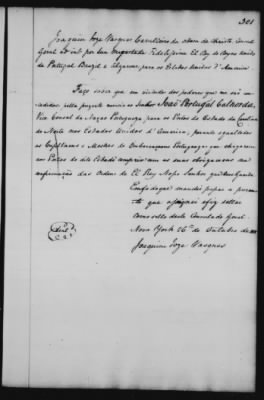 301
Joaquim Joze Vasques Cavalleiro da Ordem de Christo Consul
Geral por Sua Magestade Fidelissima El Rey do Reyno Unido
de Portugal Brazil e Algarves, para os Estados Unidos d'America
Faço saber que em virtude dos poderes que me são
concedidos pella prezente nomeio ao Senhor João Portugal
Vice Consul da Nação Portugueza para os Portos do Estado da Carolina
do Norte nos Estados Unidos d'America, perante o qual todos
os Capitaens e Mestres de Embarcaçoens Portuguezas que chegarem
aos Portos do dito Estado cumprirão com as suas obrigaçoens na
conformação das Ordens de El Rey Nosso Senhor que Deos Guarde.
Em fé do que mandei passar a prezen-
te que assignei e fiz sellar
com o sello deste Consulado Geral.
Nova York 26 de Outubro de
Joaquim Joze Vasques